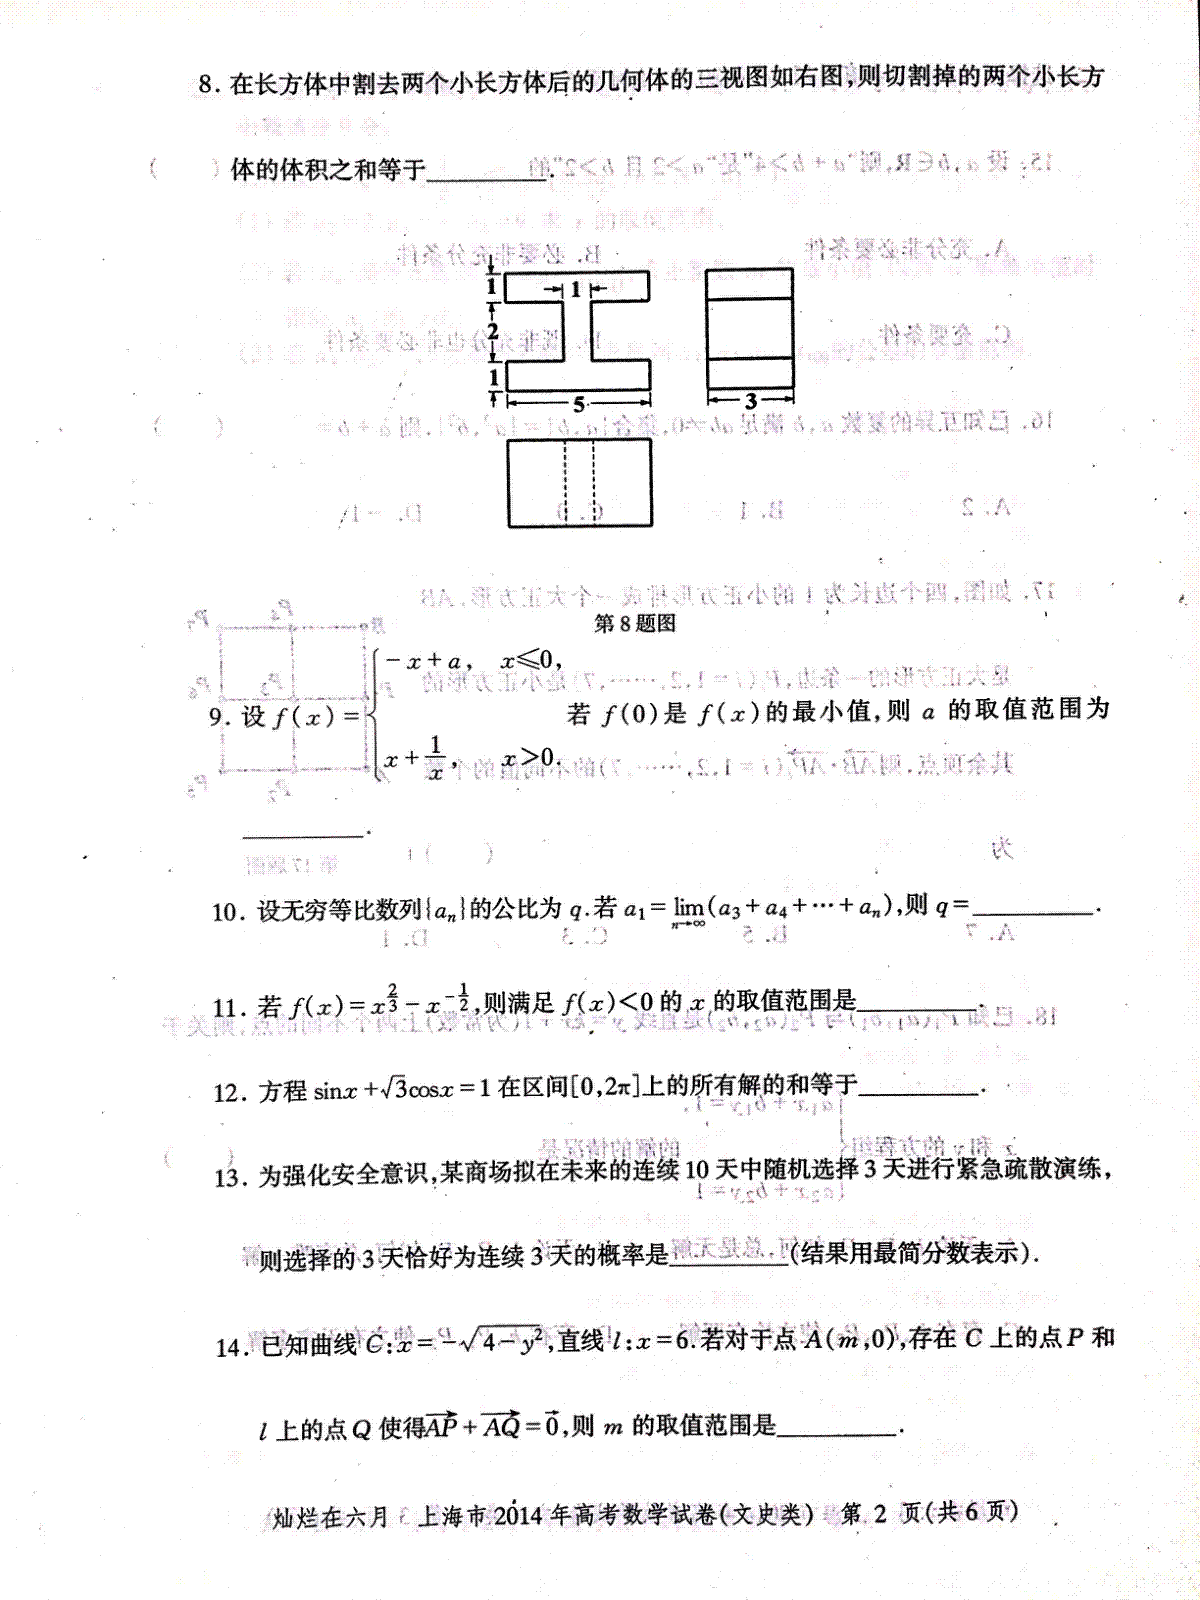 8. 在长方体中割去两个小长方体后的几何体的三视图如右图,则切割掉的两个小长方
体的体积之和等于________.
1 1
2
1
5 3
第8题图
9. 设 f(x)={-x+a, x≤0, x+1/x, x>0. 若 f(0)是 f(x)的最小值,则 a 的取值范围为
________.
10. 设无穷等比数列{aₙ}的公比为 q.若 a₁=lim(n→∞)(a₃+a₄+⋯+aₙ),则 q=________.
11. 若 f(x)=x^(2/3)-x^(-1/2),则满足 f(x)<0 的 x 的取值范围是________.
12. 方程 sinx+√3cosx=1 在区间[0,2π]上的所有解的和等于________.
13. 为强化安全意识,某商场拟在未来的连续 10 天中随机选择 3 天进行紧急疏散演练,
则选择的 3 天恰好为连续 3 天的概率是________(结果用最简分数表示).
14. 已知曲线 C:x=-√(4-y²),直线 l:x=6.若对于点 A(m,0),存在 C 上的点 P 和
l 上的点 Q 使得AP→+AQ→=0→,则 m 的取值范围是________.
灿烂在六月 上海市 2014 年高考数学试卷(文史类) 第 2 页(共 6 页)